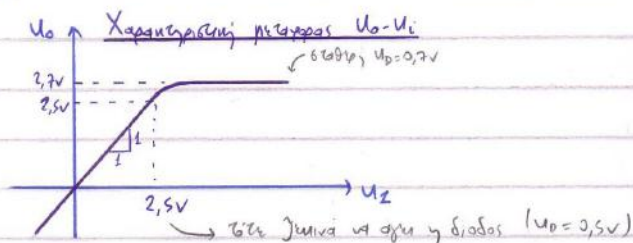 Uo Χαρακτηριστική μεταφοράς Uo-Ui
σταθερ, UD=0,7V
2,7V
2,5V
1
1
2,5V
UI
τότε ξεκινά να άγει η δίοδος (UD=0,5V)